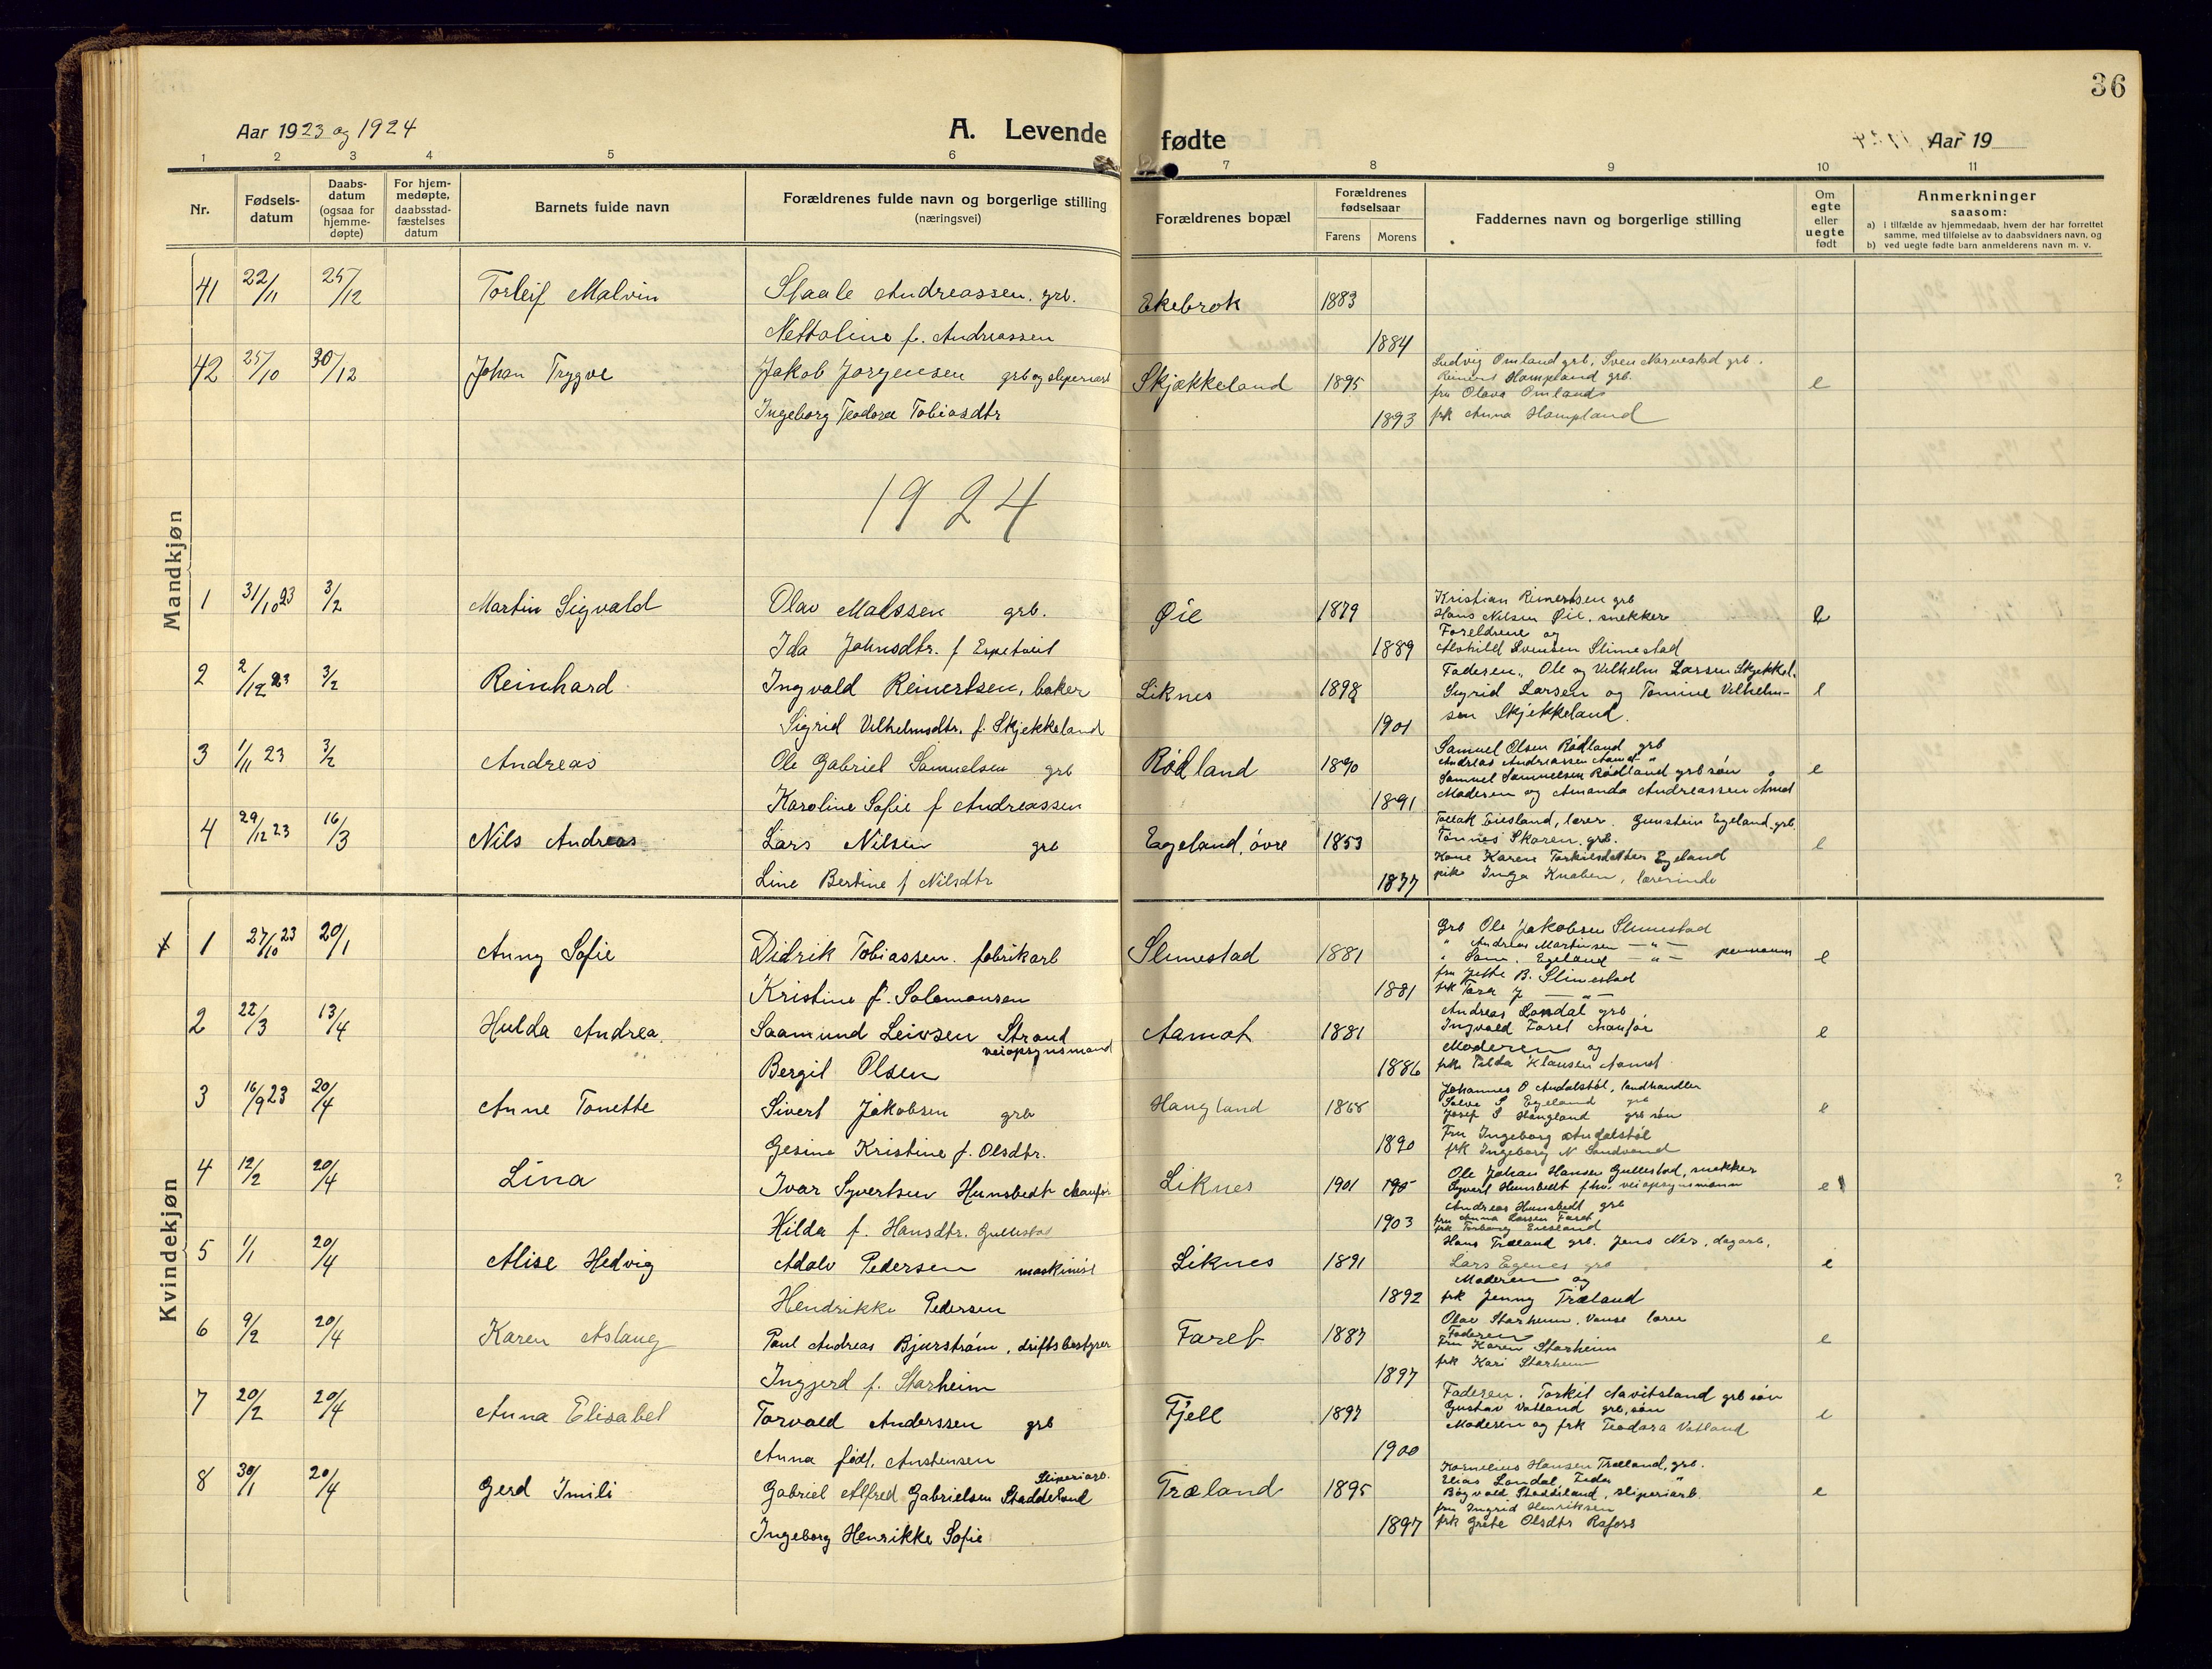 36
Aar 1923 og 1924
A. Levende fødte
Aar 19
1 2 3 4 5 6 7 8 9 10 11
Nr.
Fødsels-
datum
Daabs-
datum
(ogsaa for
hjemme-
døpte)
For hjem-
medøpte,
daabsstad-
fæstelses
datum
Barnets fulde navn
Forældrenes fulde navn og borgerlige stilling
(næringsvei)
Forældrenes bopæl
Forældrenes
fødselsaar
Farens Morens
Faddernes navn og borgerlige stilling
Om
egte
eller
uegte
født
Anmerkninger
saasom:
a) i tilfælde av hjemmedaab, hvem der har forrettet
samme, med tilføielse av to daabsvidners navn, og
b) ved uegte fødte barn anmelderens navn m. v.
Mandkjøn
41 22/11 25/12 Torleif Malvin Staale Andreassen, grb. Ekebrok 1883
Nettoline f. Andreassen 1884
42 25/10 30/12 Johan Trygve Jakob Jørgensen grb og Skjækkeland 1895 e
Ingeborg Teodora Tobiasdtr 1893
Ludvig Omland grb, Sven Narvestad grb.
Reinert Hompland grb.
fru Olava Omland
frk Anna Hompland
1924
1 31/10 23 3/2 Martin Sigvald Olav Matssen grb. Øie 1879 e
Ida Johnsdtr. f Espetveit 1889
Kristian Reinertsen grb
Hans Nilsen Øie, snekker
Foreldrene og
Alvhild Svensen Slimestad
2 2/12 23 3/2 Reinhard Ingvald Reinertsen, baker Liknes 1898 e
Sigrid Vilhelmsdtr. f. Skjekkeland 1901
Faderen, Ole og Vilhelm Larsen Skjekkel.
Sigrid Larsen og Tomine Vilhelm-
sen Skjekkeland.
3 1/11 23 3/2 Andreas Ole Gabriel Samuelsen grb Rødland 1890 e
Karoline Sofie f Andreassen 1891
Samuel Olsen Rødland grb
Andreas Andreassen Aamot "
Samuel Samuelsen Rødland grb søn
Moderen og Amanda Andreassen Åmot
4 29/12 23 16/3 Nils Andreas Lars Nilsen grb Egeland, øvre 1853 e
Line Bertine f Nilsdtr 1877
Tollak Eiesland, lærer. Gunstein Egeland, grb.
Tønnes Skaren, grb.
Kone Karen Torkelsdatter Egeland
pike Inga Knaben, lærerinde
Kvindekjøn
1 27/10 23 20/1 Anny Sofie Didrik Tobiassen, fabrikarb Slimestad 1881 e
Kristine f. Salomonsen 1881
Grb Ole Jakobsen Slimestad
" Andreas Martinsen — " —
" Sam. Egeland — " —
fru Jette B. Slimestad
frk Tora J — " —
2 22/3 13/4 Hulda Andrea Saamund Leivsen Strand Aamot 1881 e
veiopsynsmand
Bergit Olsen 1886
Andreas Londal grb
Ingvald Faret chaufør
Moderen og
frk Tilda Klausen Aamot
3 16/9 23 20/4 Anne Tonette Sivert Jakobsen grb Haugland 1868 e
Gesine Kristine f. Olsdtr. 1890
Johannes O Andalstøl, landhandler
Salve S Egeland grb
Josef S Haugland grb søn
Fru Ingeborg Andalstøl
frk Ingeborg N Sandvand
4 12/2 20/4 Lina Ivar Syvertsen Hunsbedt chaufør Liknes 1901 e
Hilda f. Hansdtr. Gullestad 1903
Ole Johan Hansen Gullestad, snekker
Syvert Hunsbedt fhv. veiopsynsmann
Andreas Hunsbedt grb
fru Anna Larsen Faret
frk Torborg Eiesland
?
5 1/1 20/4 Alise Hedvig Adolv Pedersen maskinist Liknes 1891 e
Hendrikke Pedersen 1892
Hans Træland grb. Jens Nes, dagarb,
Lars Egenes grb
Moderen og
frk Jenny Træland
6 9/2 20/4 Karen Aslaug Paul Andreas Bjurstrøm, driftsbestyrer Faret 1887 e
Ingjerd f. Starheim 1897
Olav Starheim, Vanse lærer
Faderen
Fru Karen Starheim
frk Kari Starheim
7 20/2 20/4 Anna Elisabet Torvald Anderssen grb Fjell 1897 e
Anna født. Anstensen 1900
Faderen. Torkil Aavitsland grb søn
Gustav Vatland grb, søn
Moderen og frk Teodora Vatland
8 30/1 20/4 Gerd Imili Gabriel Alfred Gabrielsen Staddeland Træland 1895 e
Sliperiarb.
Ingeborg Henrikke Sofie 1897
Kornelius Hansen Træland, grb.
Elias Londal, Feda "
Bogvald Staddeland, sliperiarb.
fru Ingrid Henriksen
frk Grete Olsdtr Rafoss